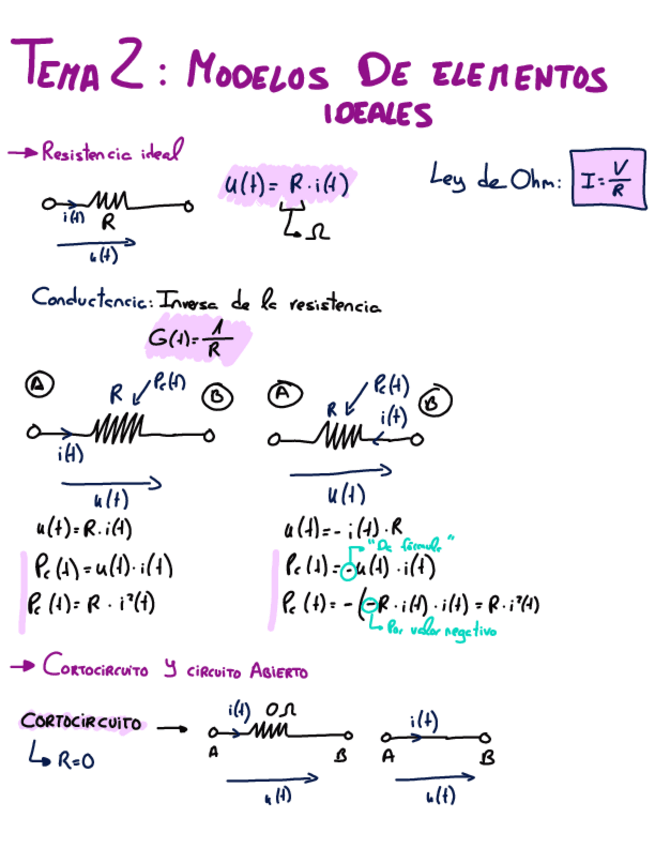 TEMA 2: MODELOS DE ELEMENTOS
IDEALES
→ Resistencia ideal
u(t) = R · i(t)
Ω
Ley de Ohm: I = V/R
i(t) R
u(t)
Conductancia: Inversa de la resistencia
G(t) = 1/R
A R Pc(t) B
i(t)
u(t)
A R Pc(t) i(t) B
u(t)
u(t) = R · i(t)
Pc(t) = u(t) · i(t)
Pc(t) = R · i²(t)
u(t) = - i(t) · R
"De fórmula"
Pc(t) = -u(t) · i(t)
Pc(t) = - (-R · i(t) · i(t) = R · i²(t)
Por valor negativo
→ CORTOCIRCUITO Y CIRCUITO ABIERTO
CORTOCIRCUITO →
R=0
i(t) 0Ω
A B
u(t)
i(t)
A B
u(t)